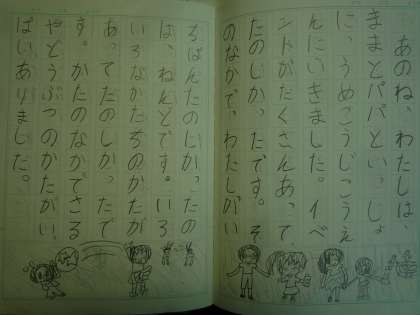 あのね、わたしは、
ままとパパといっしょ
に、うめこうじこうえ
んにいきました。イベ
ントがだくさんあって
たのしかったです。そ
のなかで、わたしがい
ちばんたのしかったの
は、ねんどです。いろ
いろなかたちのかたが
あってたのしかったで
す。かたのなかでさる
やどうぶつのかたがい
ぱいありました。